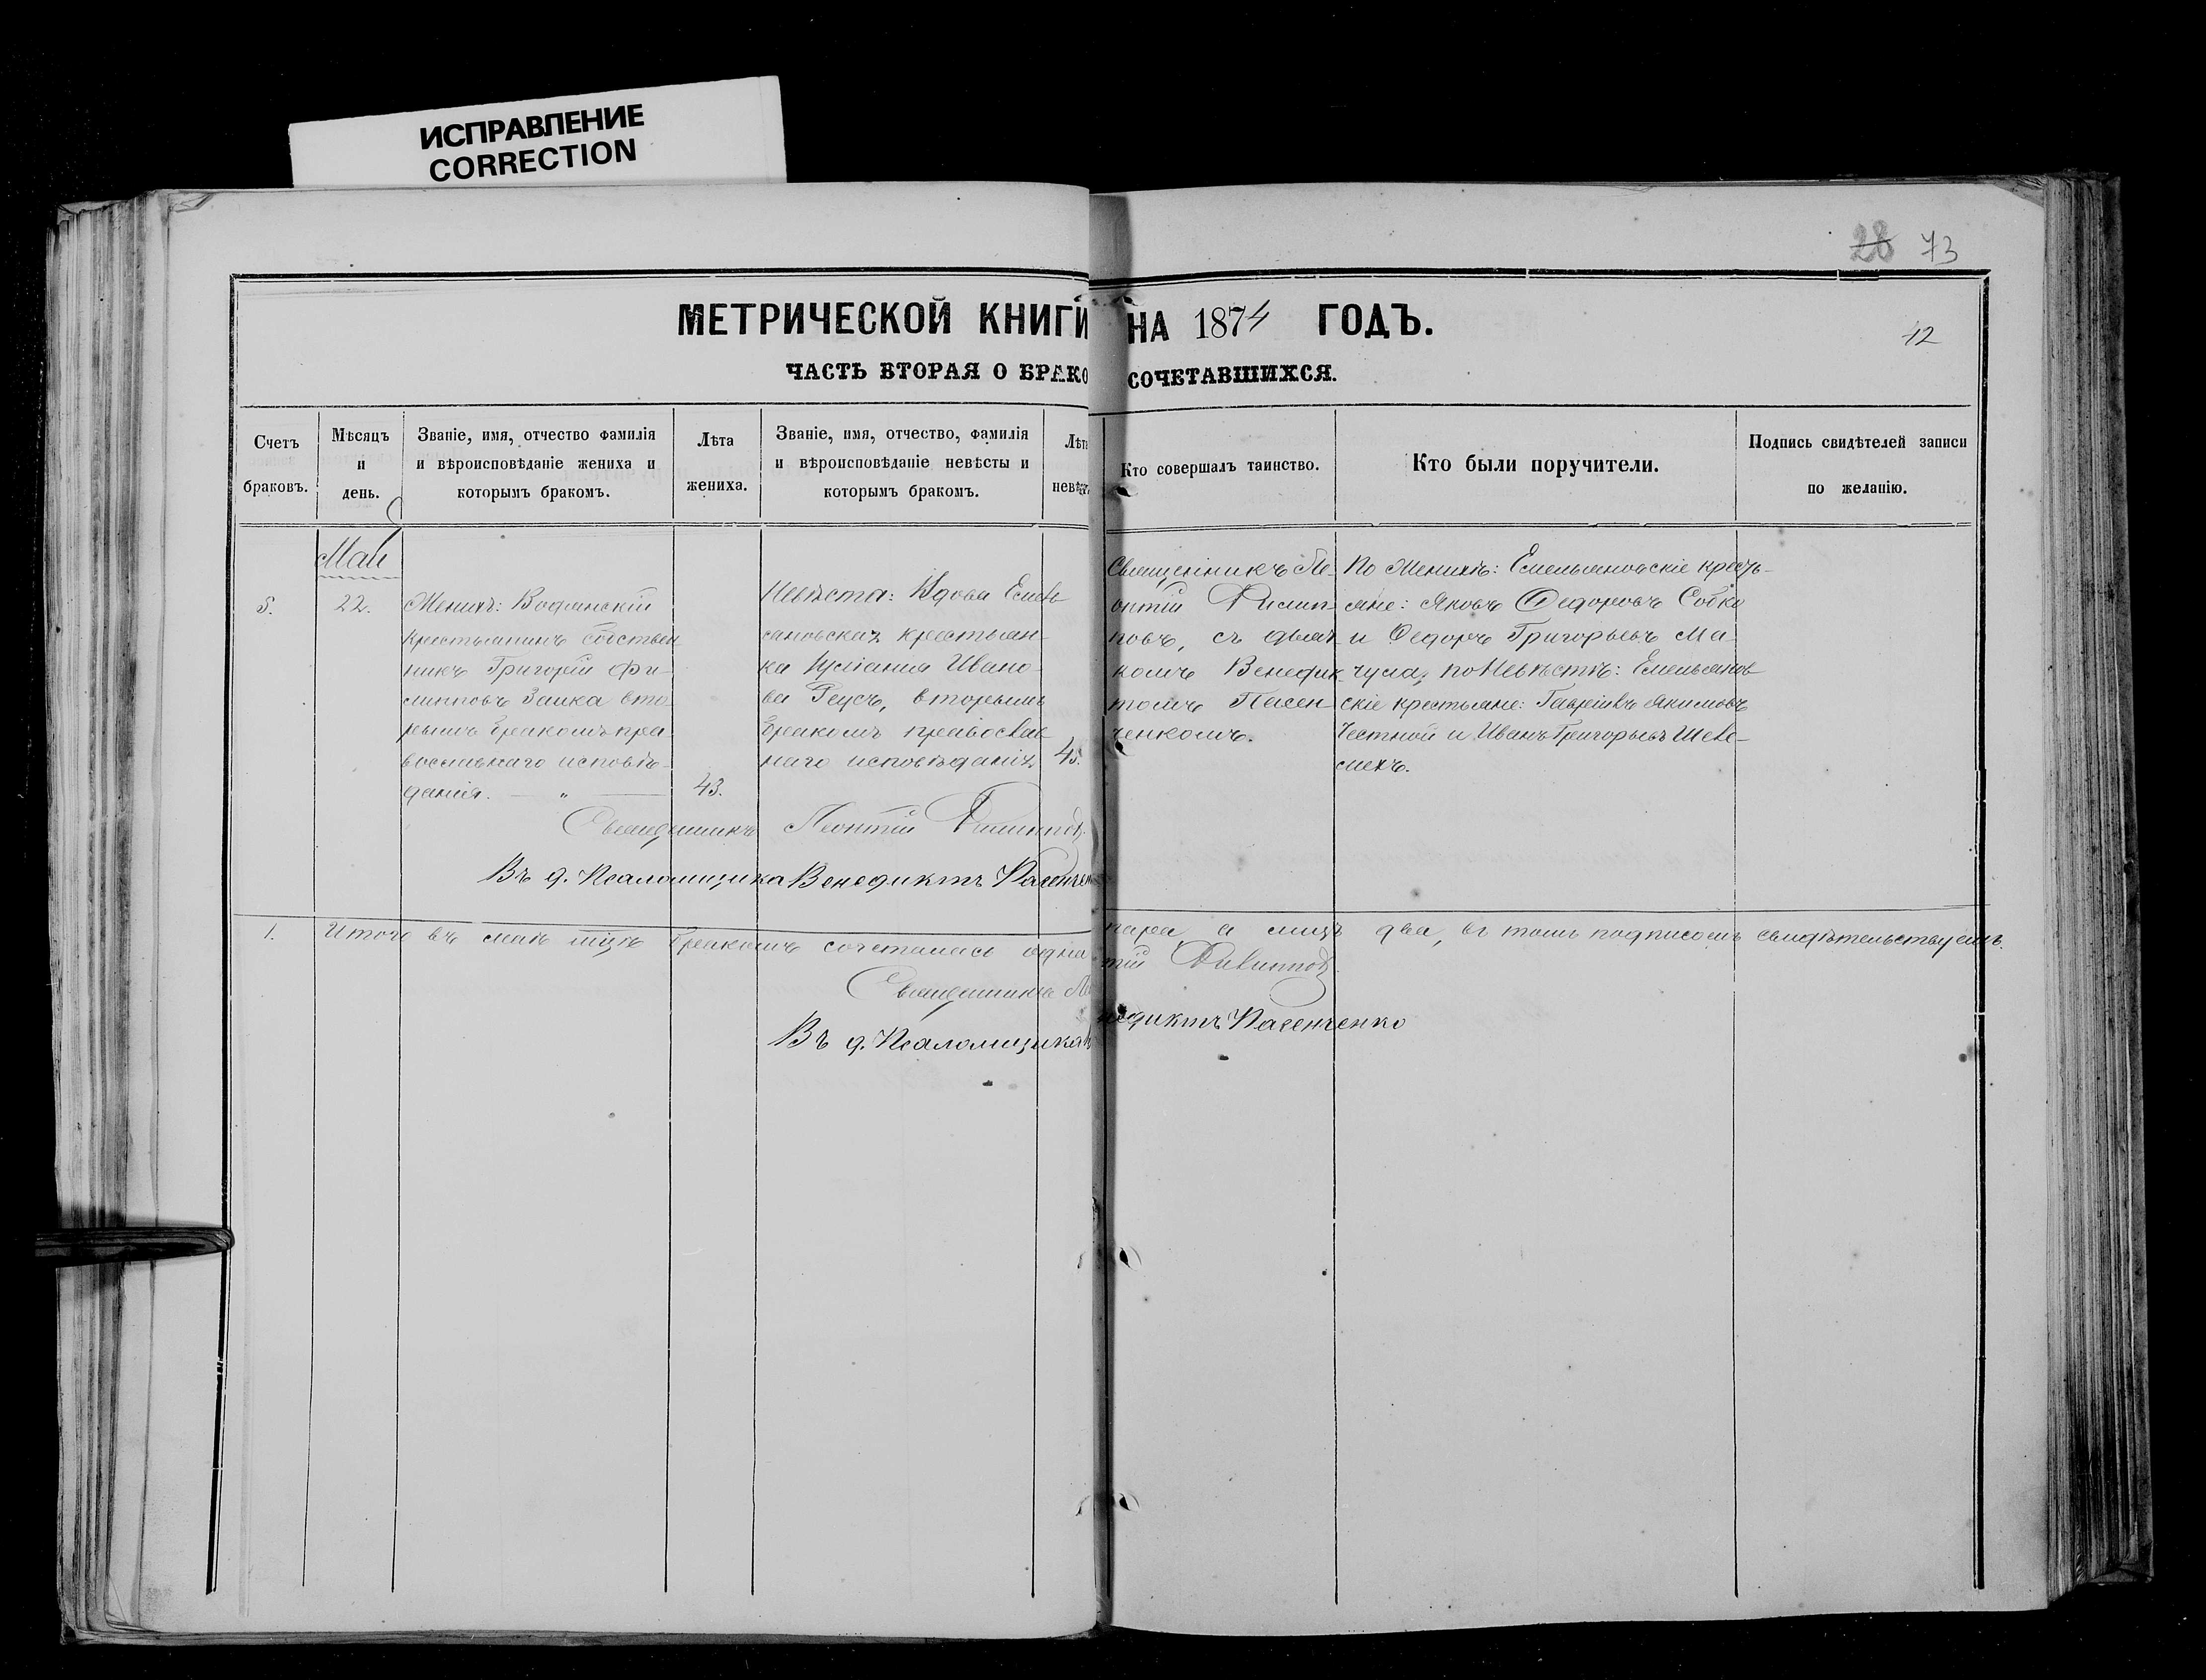 ИСПРАВЛЕНИЕ
CORRECTION
28 73
МЕТРИЧЕСКОЙ КНИГИ НА 1874 ГОДЪ.
42
ЧАСТЬ ВТОРАЯ О БРАКОСОЧЕТАВШИХСЯ.
Счетъ браковъ.
Мѣсяцъ и день.
Званіе, имя, отчество фамилія
и вѣроисповѣданіе жениха и
которымъ бракомъ.
Лѣта
жениха.
Званіе, имя, отчество, фамилія
и вѣроисповѣданіе невѣсты и
которымъ бракомъ.
Лѣта
невѣст
Кто совершалъ таинство.
Кто были поручители.
Подпись свидѣтелей записи
по желанію.
Май
5.
22.
Женихъ: Водянскій
крестьянинъ собствен
никъ Григорій Фи-
липповъ Заика вто
рымъ бракомъ пра
вославнаго исповѣ-
данія. — „ —
43.
Невѣста: Вдова Емель
яновская крестьян-
ка Иулianія Ивано-
ва Реусъ, вторымъ
бракомъ православ
наго исповѣданія
45.
Священникъ Ле-
онтій Филип
повъ, съ дьяч
комъ Венедик
томъ Пасен
ченкомъ.
По Женихѣ: Емельяновскіе кресть-
яне: Яковъ Федоровъ Собко
и Федоръ Григорьевъ Ма-
чула; по Невѣстѣ: Емельянов
скіе крестьяне: Гавріилъ Якимовъ
Честной и Иванъ Григорьевъ Шеве-
лехъ.
Священникъ Леонтій Филипповъ
Въ д. Псаломщика Венедиктъ Пасенчен
1. Итого въ маѣ мцѣ бракомъ сочеталась одна пара а лицъ два, въ томъ подписомъ свидѣтельствуемъ.
Священникъ Леонтій Филипповъ
Въ д. Псаломщика Венедиктъ Пасенченко